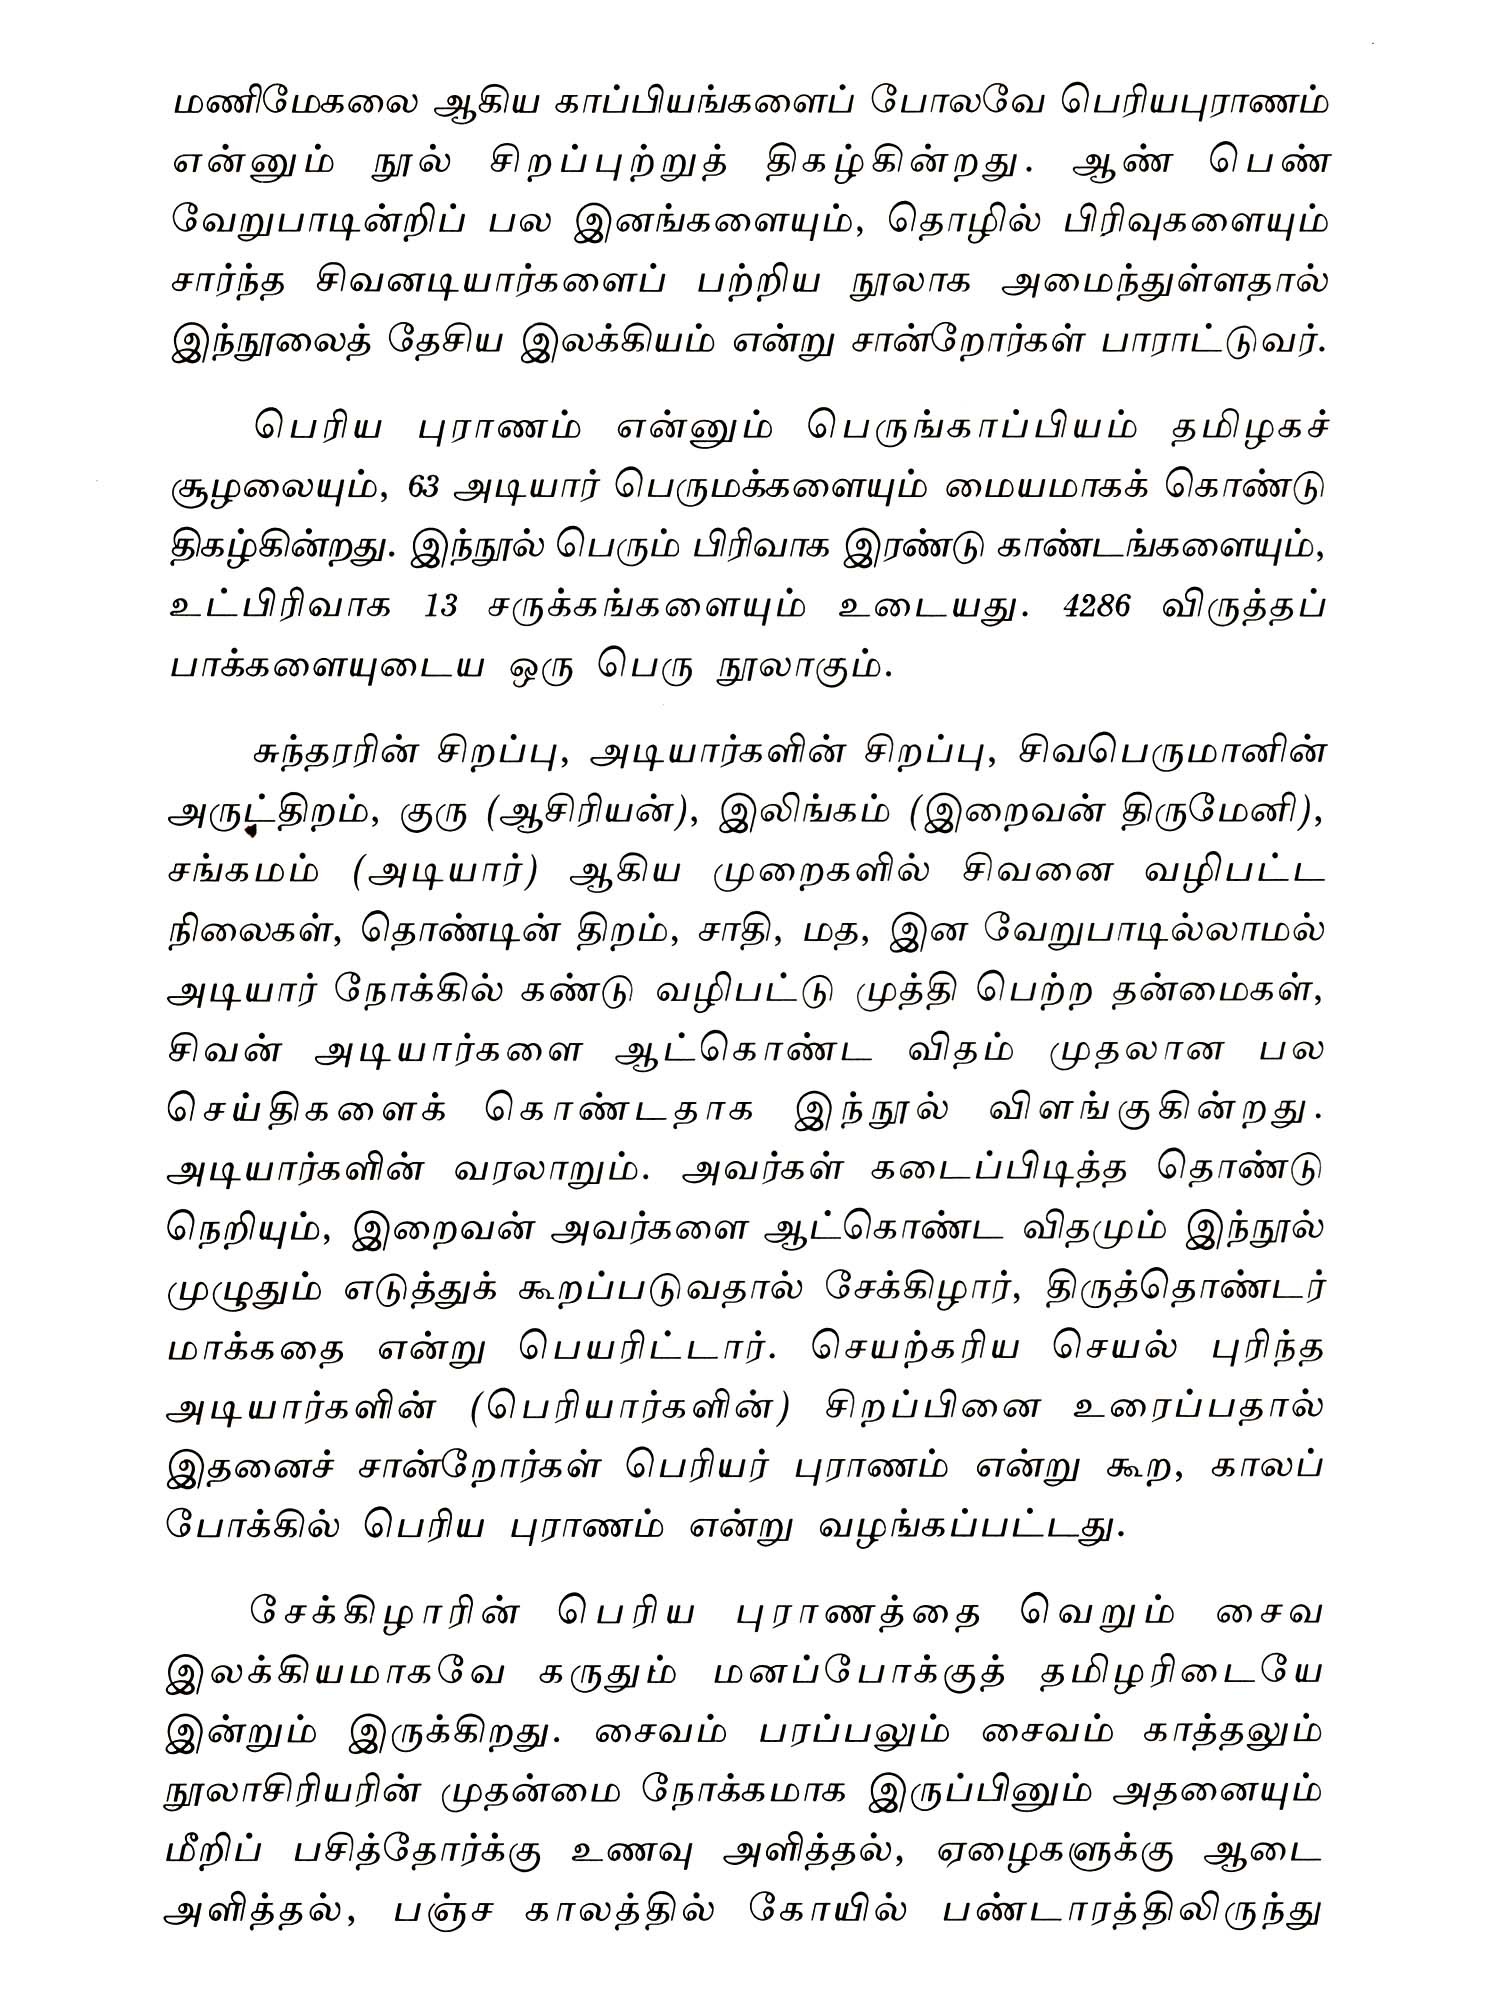 மணிமேகலை ஆகிய காப்பியங்களைப் போலவே பெரியபுராணம்
என்னும் நூல் சிறப்புற்றுத் திகழ்கின்றது. ஆண் பெண்
வேறுபாடின்றிப் பல இனங்களையும், தொழில் பிரிவுகளையும்
சார்ந்த சிவனடியார்களைப் பற்றிய நூலாக அமைந்துள்ளதால்
இந்நூலைத் தேசிய இலக்கியம் என்று சான்றோர்கள் பாராட்டுவர்.
பெரிய புராணம் என்னும் பெருங்காப்பியம் தமிழகச்
சூழலையும், 63 அடியார் பெருமக்களையும் மையமாகக் கொண்டு
திகழ்கின்றது. இந்நூல் பெரும் பிரிவாக இரண்டு காண்டங்களையும்,
உட்பிரிவாக 13 சருக்கங்களையும் உடையது. 4286 விருத்தப்
பாக்களையுடைய ஒரு பெரு நூலாகும்.
சுந்தரரின் சிறப்பு, அடியார்களின் சிறப்பு, சிவபெருமானின்
அருட்திறம், குரு (ஆசிரியன்), இலிங்கம் (இறைவன் திருமேனி),
சங்கமம் (அடியார்) ஆகிய முறைகளில் சிவனை வழிபட்ட
நிலைகள், தொண்டின் திறம், சாதி, மத, இன வேறுபாடில்லாமல்
அடியார் நோக்கில் கண்டு வழிபட்டு முத்தி பெற்ற தன்மைகள்,
சிவன் அடியார்களை ஆட்கொண்ட விதம் முதலான பல
செய்திகளைக் கொண்டதாக இந்நூல் விளங்குகின்றது.
அடியார்களின் வரலாறும். அவர்கள் கடைப்பிடித்த தொண்டு
நெறியும், இறைவன் அவர்களை ஆட்கொண்ட விதமும் இந்நூல்
முழுதும் எடுத்துக் கூறப்படுவதால் சேக்கிழார், திருத்தொண்டர்
மாக்கதை என்று பெயரிட்டார். செயற்கரிய செயல் புரிந்த
அடியார்களின் (பெரியார்களின்) சிறப்பினை உரைப்பதால்
இதனைச் சான்றோர்கள் பெரியர் புராணம் என்று கூற, காலப்
போக்கில் பெரிய புராணம் என்று வழங்கப்பட்டது.
சேக்கிழாரின் பெரிய புராணத்தை வெறும் சைவ
இலக்கியமாகவே கருதும் மனப்போக்குத் தமிழரிடையே
இன்றும் இருக்கிறது. சைவம் பரப்பலும் சைவம் காத்தலும்
நூலாசிரியரின் முதன்மை நோக்கமாக இருப்பினும் அதனையும்
மீறிப் பசித்தோர்க்கு உணவு அளித்தல், ஏழைகளுக்கு ஆடை
அளித்தல், பஞ்ச காலத்தில் கோயில் பண்டாரத்திலிருந்து